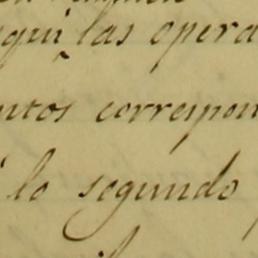 aqui las opera
ntos correspon
lo segundo